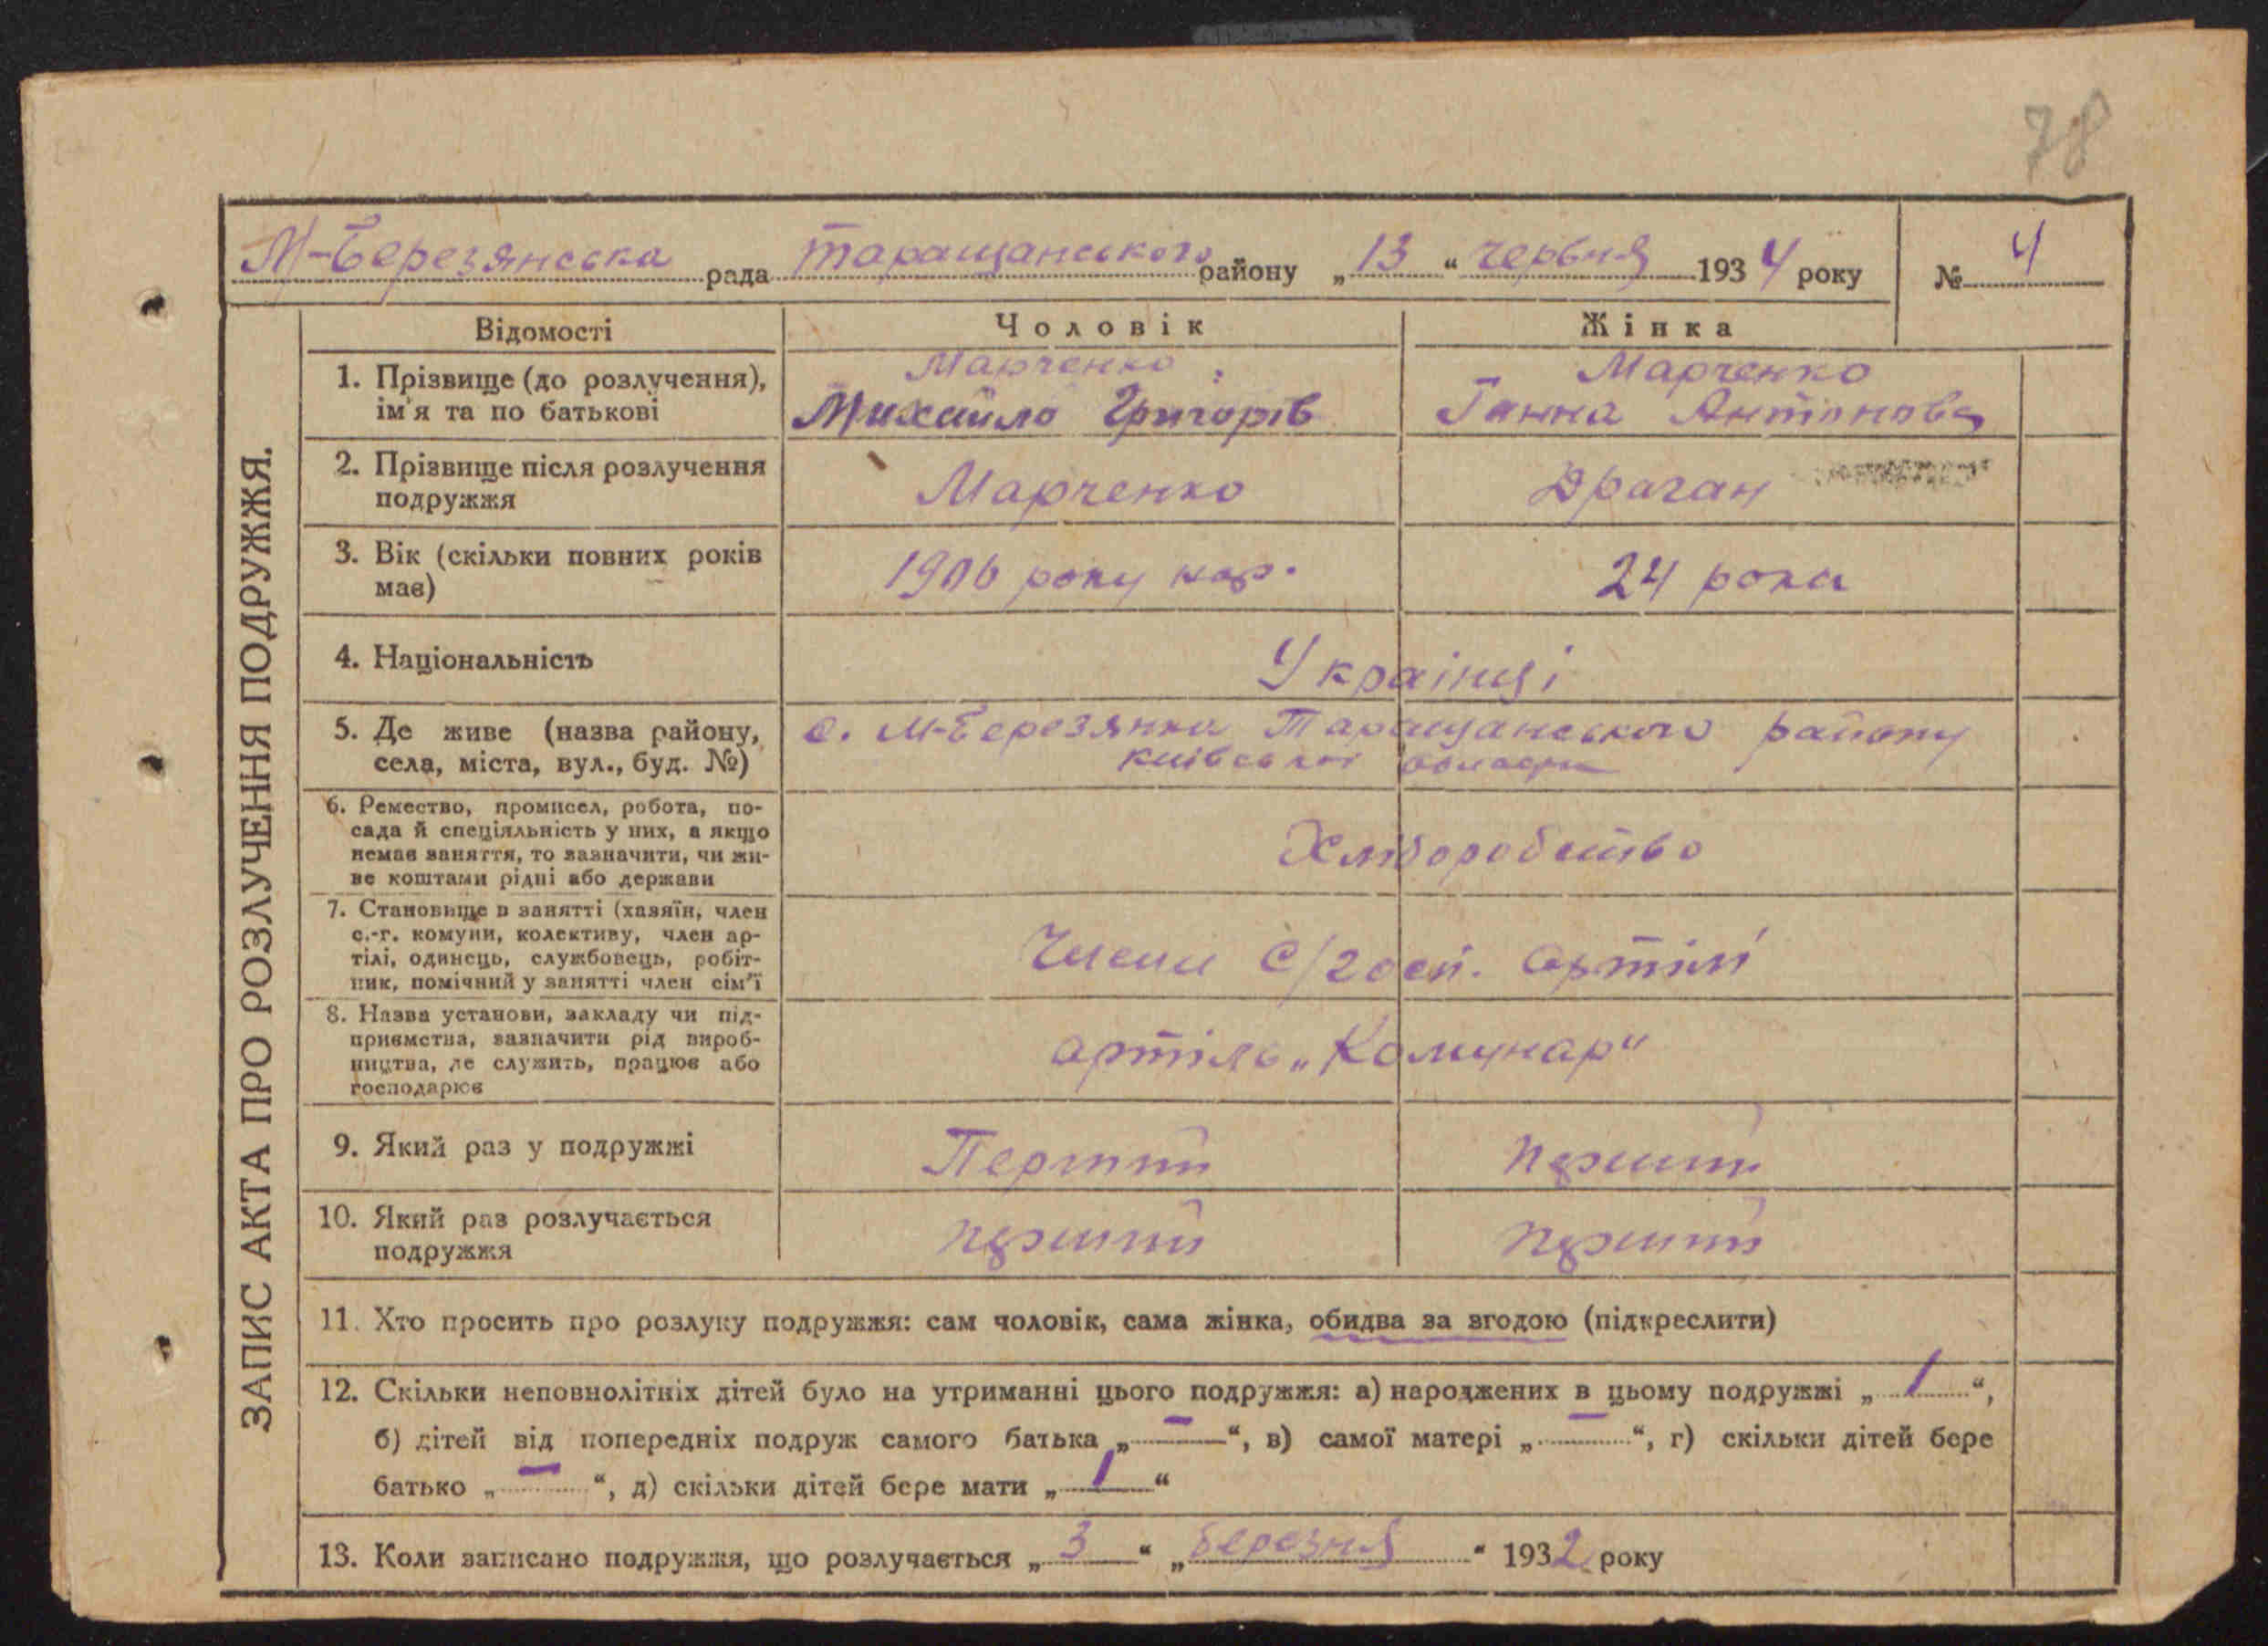 78
М-Березянська рада Таращанського району „13“ червня 1934 року № 4
ЗАПИС АКТА ПРО РОЗЛУЧЕННЯ ПОДРУЖЖЯ.
Відомості Чоловік Жінка
1. Прізвище (до розлучення), Марченко Марченко
ім'я та по батькові Михайло Григорів Ганна Антонова
2. Прізвище після розлучення Марченко Драган
подружжя
3. Вік (скільки повних років 1906 року нар. 24 роки
має)
4. Національність Українці
5. Де живе (назва району, с. М-Березянка Таращанського району
села, міста, вул., буд. №) Київської області
6. Ремество, промисел, робота, по-
сада й спеціяльність у них, а якщо
немає заняття, то зазначити, чи жи- Хліборобство
ве коштами рідні або держави
7. Становище в занятті (хазяїн, член
с.-г. комуни, колективу, член ар-
тілі, одинець, службовець, робіт- Члени с/госп. артілі
ник, помічний у занятті член сім'ї
8. Назва установи, закладу чи під-
приємства, зазначити рід вироб-
ництва, де служить, працює або артіль „Комунар“
господарює
9. Який раз у подружжі Перший перший
10. Який раз розлучається перший перший
подружжя
11. Хто просить про розлуку подружжя: сам чоловік, сама жінка, обидва за згодою (підкреслити)
12. Скільки неповнолітніх дітей було на утриманні цього подружжя: а) народжених в цьому подружжі „1“,
б) дітей від попередніх подруж самого батька „—“, в) самої матері „—“, г) скільки дітей бере
батько „—“, д) скільки дітей бере мати „1“
13. Коли записано подружжя, що розлучається „3“ „березня“ 1932 року